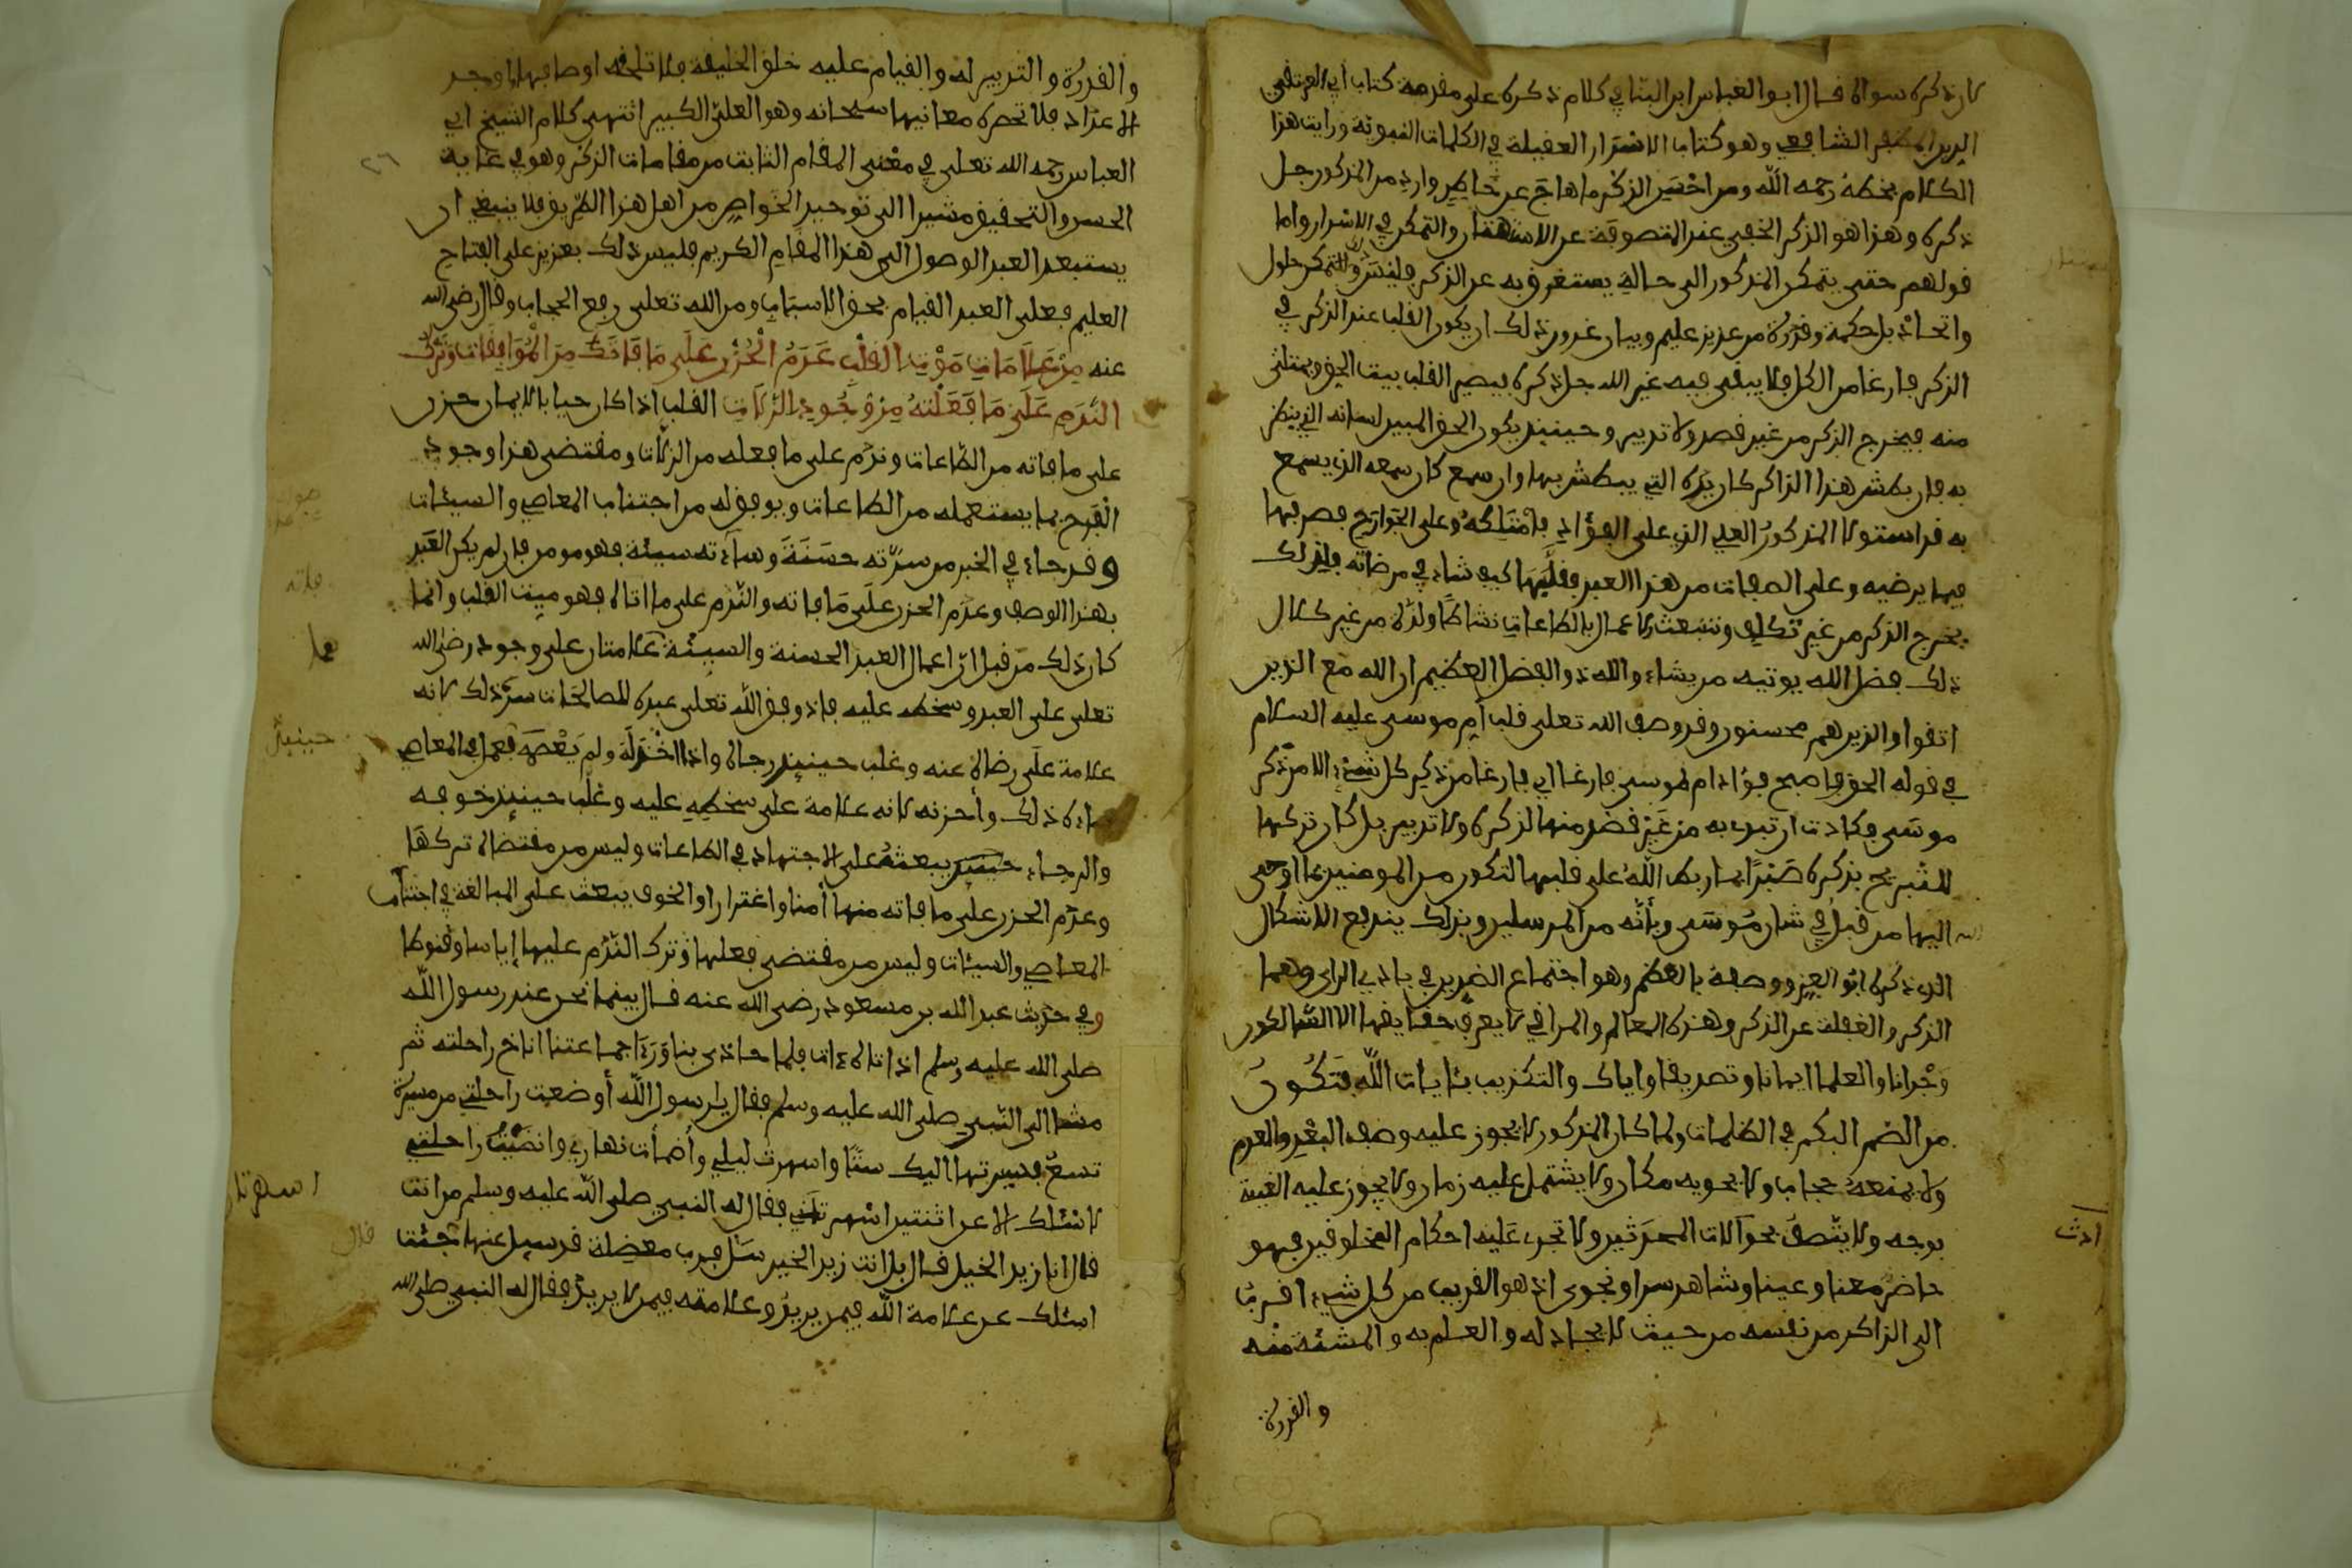 كان ذكره سواه قال ابو العباس ابن البنا في كلام ذكره على مقدمة كتاب ابي العز تقي
الدين ابن المظفر الشافعي وهو كتاب الاسرار العقلية في الكلمات النبوية ورايت هذا
الكلام بخطه رحمه الله ومن احسن الذكر ما هاج عن خاطر وارد من المذكور جل
ذكره وهذا هو الذكر الخفي عند المتصوفة عن الاستهتار والتمكن في الاسرار واما
قولهم حتى يتمكن المذكور الى حالة يستغرق به عن الذكر فليس ذو التمكن حلول
واتحاد بل حكمة وقدرة من عزيز عليم وبيان غدور ذلك ان يكون القلب عند الذكر في
الذكر فارغا من الكل فلا يبقى فيه غير الله جل ذكره فيصير القلب بيت الحق ويمتلئ
منه فيخرج الذكر من غير قصد ولا تدبير وحينئذ يكون الحق المبين لسانه الذي ينطق
به فان بطش هذا الذاكر كان يده التي يبطش بها وان سمع كان سمعه الذي يسمع
به قد استولى المذكور العلي الذي على الفؤاد فامتلكه وعلى الجوارح فصرفها
فيما يرضيه وعلى الصفات من هذا العبد فقلبها كيف شاء في مرضاته فلذلك
يخرج الذكر من غير تكلف وتنبعث الاعمال بالطاعات نشاطا ولذة من غير كلال
ذلك فضل الله يوتيه من يشاء والله ذو الفضل العظيم ان الله مع الذين
اتقوا والذين هم محسنون وقد وصف الله تعلى قلب ام موسى عليه السلام
في قوله الحق واصبح فؤاد ام موسى فارغا اي فارغا من ذكر كل شيء الا من ذكر
موسى فكادت ان تبدي به من غير قصد منها لذكره ولا تدبير بل كان تركها
للتبريح بذكره صبرا بما ربط الله على قلبها لتكون من المومنين بما اوحى
الله اليها من قبل في شان موسى وبانه من المرسلين وبذلك يندفع الاشكال
الذي ذكره ابو العز ووصفه بالعظم وهو اجتماع الضدين في بادي الراي وهما
الذكر والغفلة عن الذكر وهذه المعالم والمراقي لا يعرف حقايقها الا السالكون
وجدانا والعلما ايمانا وتصديقا واياك والتكذيب بئايات الله فتكون
من الصم البكم في الظلمات ولما كان المذكور لا يجوز عليه وصف البعد والعدم
ولا يمنعه حجاب ولا يحويه مكان ولا يشتمل عليه زمان ولا يجوز عليه الغيبة
بوجه ولا يتصف بحوالات المحدثين ولا تجري عليه احكام المخلوقين فهو
ادث
حاضر معنا وعينا وشاهد سرا ونجوى اذ هو القريب من كل شيء اقرب
الى الذاكر من نفسه من حيث الايجاد له والعلم به والمشئة منه
والقدرة
والقدرة والتدبير له والقيام عليه خلق الخليقة فلا تلحقه اوصافها واوجد
الاعداد فلا تحصره معانيها سبحانه وهو العلي الكبير انتهى كلام الشيخ ابي
العباس رحمه الله تعلى في معنى المقام الثابت من مقامات الذكر وهو في غاية
٢٦
الحسن والتحقيق مشيرا الى توحيد الخواص من اهل هذا الطريق فلا ينبغي ان
يستبعد العبد الوصول الى هذا المقام الكريم فليس ذلك بعزيز على الفتاح
العليم فعلى العبد القيام بحق الاسباب ومن الله تعلى رفع الحجاب وقال رضي الله
عنه من علامات موت القلب عدم الحزن على ما فاتك من الموافقات وترك
الندم على ما فعلته من وجود الزلات القلب اذا كان حيا بالايمان حزن
على ما فاته من الطاعات وندم على ما فعله من الزلات ومقتضى هذا وجود
الفرح بما يستعمله من الطاعات ويوفق له من اجتناب المعاصي والسيئات
وقد جاء في الخبر من سرته حسنة وساءته سيئة فهو مومن فان لم يكن العبد
بهذا الوصف وعدم الحزن على ما فاته والندم على ما اتاه فهو ميت القلب وانما
فاته
كان ذلك من قبل ان اعمال العبد الحسنة والسيئة علامتان على وجود رضى الله
تعلى على العبد وسخطه عليه فاذا وفق الله تعلى عبده للصالحات سره ذلك لانه
علامة على رضاه عنه وغلب حينئذ رجاه واذا اخذله ولم يعصمه فعمل بالمعاصي
حينئذ
ساءه ذلك واحزنه لانه علامة على سخطه عليه وغلب حينئذ خوفه
والرجاء حينئذ يبعثه على الاجتهاد في الطاعات وليس من مقتضاه تركها
وعدم الحزن على ما فاته منها أمنا واغترارا والخوف يبعث على المبالغة في اجتناب
المعاصي والسيئات وليس من مقتضى فعلها وترك الندم عليها إياسا وقنوطا
وفي حديث عبد الله بن مسعود رضي الله عنه قال بينما نحن عند رسول الله
صلى الله عليه وسلم اذ اتاه ءات فلما حاذى بنا وراى جماعتنا اناخ راحلته ثم
مشا الى النبي صلى الله عليه وسلم فقال يا رسول الله أوضعت راحلتي من مسيرة
تسع فسيرتها اليك ستا واسهرت ليلي وأضمأت نهاري وانضيت راحلتي
لاسئلك الا عن اثنتين اسهرتني فقال له النبي صلى الله عليه وسلم من انت
اسهرتا
قال
قال انا زيد الخيل قال بل انت زيد الخير سل فرب معضلة قد سيل عنها فجئت
اسئلك عن علامة الله فيمن يريد وعلامته فيمن لا يريد فقال له النبي صلى الله